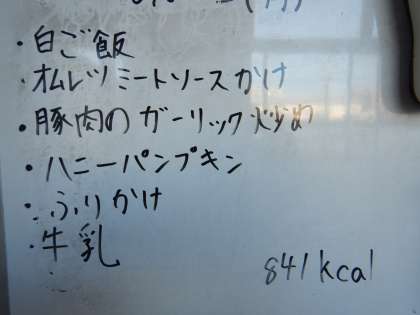 ・白ご飯
・オムレツミートソースかけ
・豚肉のガーリック炒め
・ハニーパンプキン
・ふりかけ
・牛乳
841kcal